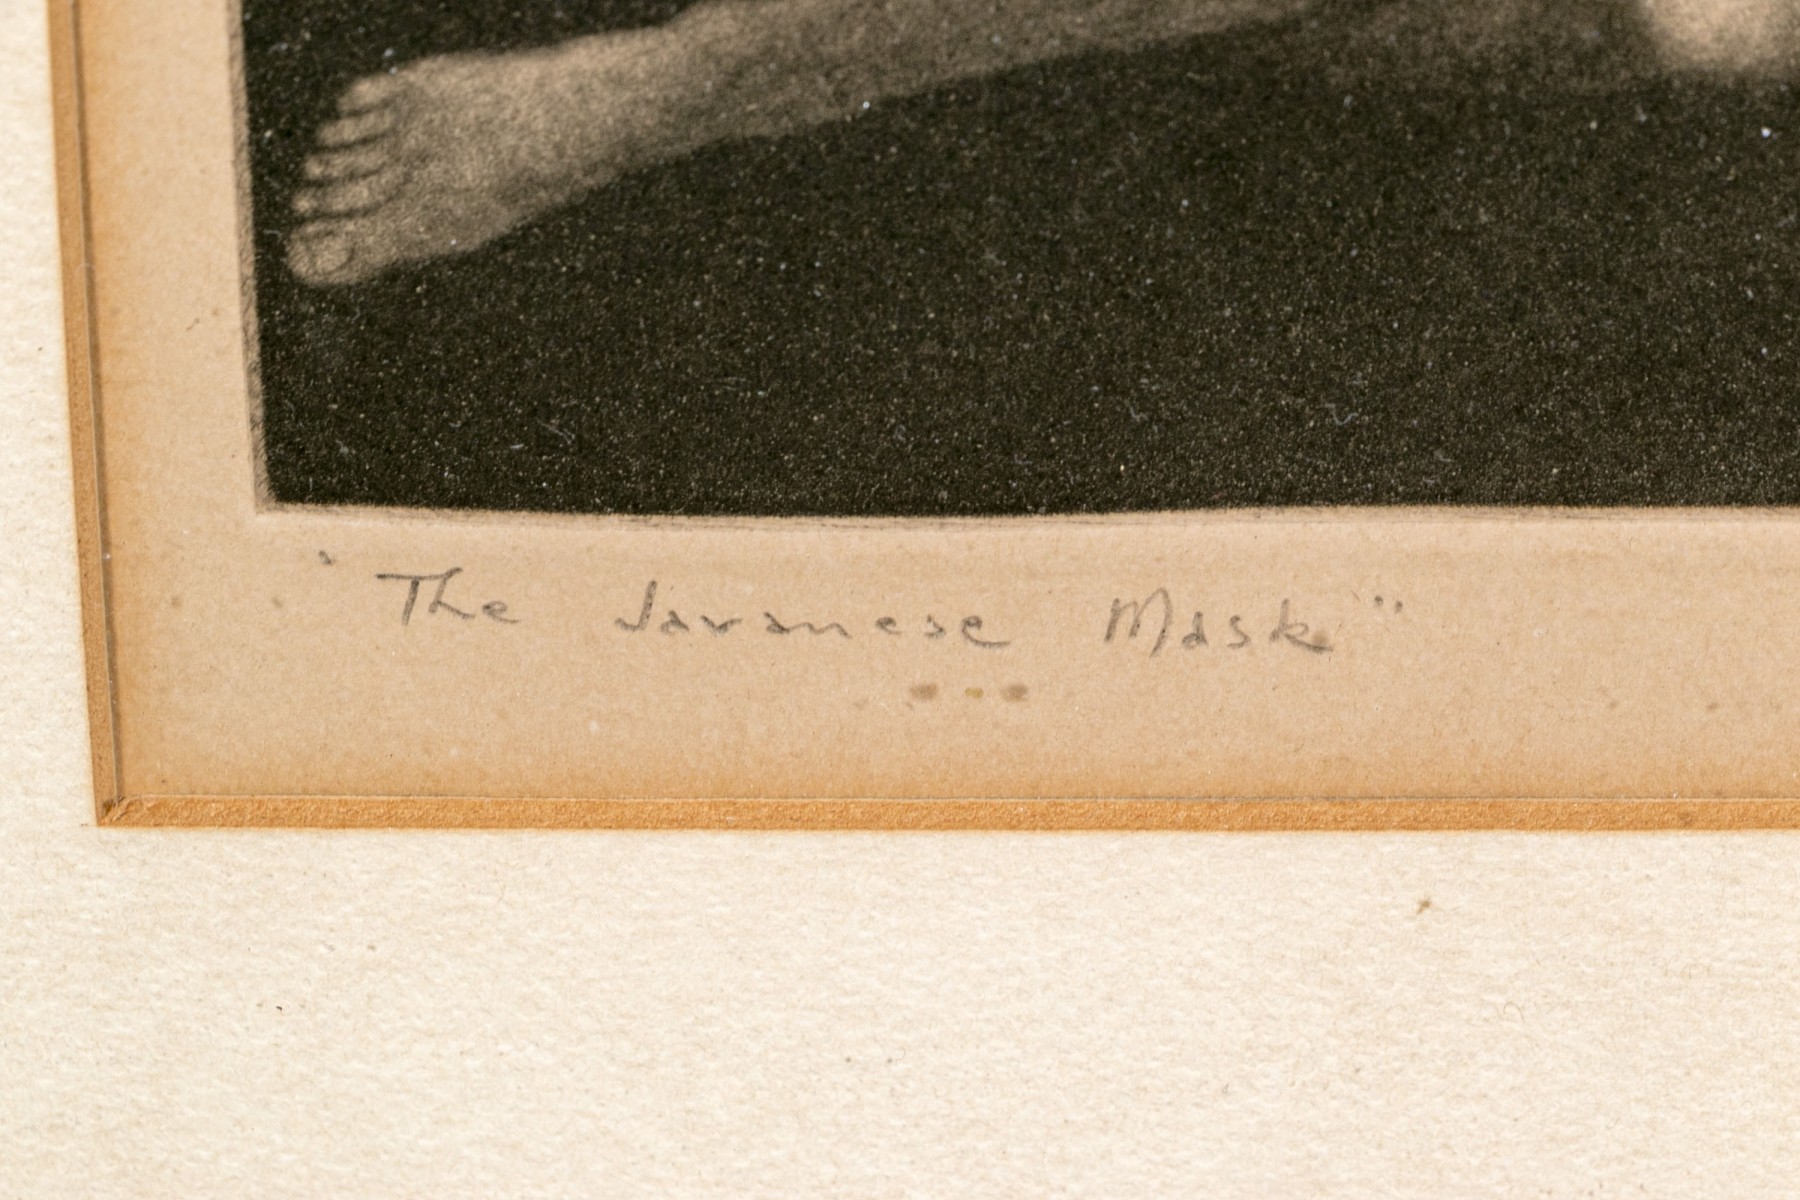 'The Javanese Mask"